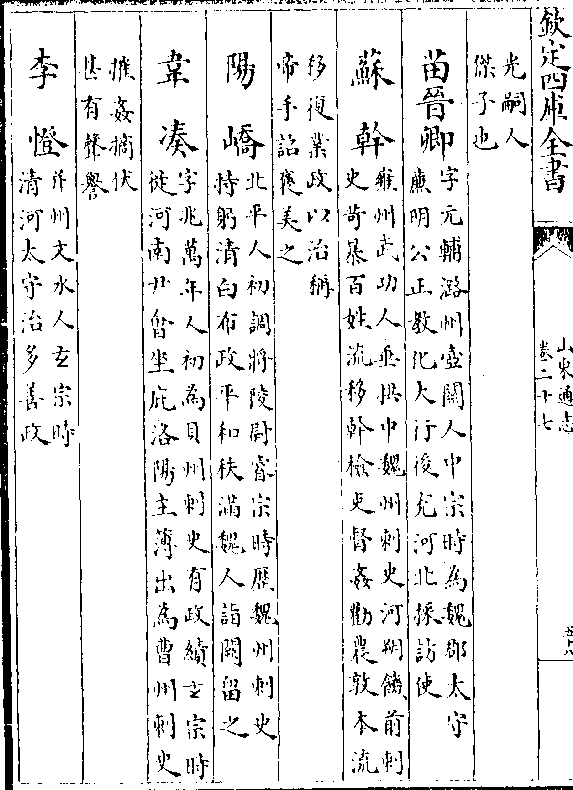 欽定四庫全書
山東通志
卷二十七
五十八
光嗣人
傑子也
苗晉卿
字元輔潞州壺關人中宗時為魏郡太守
廉明公正教化大行後充河北採訪使
蘇幹
雍州武功人垂拱中魏州刺史河朔饑前刺
史苛暴百姓流移幹檢吏督姦勸農敦本流
移復業政以治稱
帝手詔褒美之
陽嶠
北平人初調將陵尉睿宗時歷魏州刺史
特躬清白布政平和秩滿魏人詣闕留之
韋湊
字兆萬年人初為貝州刺史有政績玄宗時
徙河南尹會坐庇洛陽主簿出為曹州刺史
摧姦摘伏
甚有聲譽
李憕
并州文水人玄宗時
清河太守治多善政